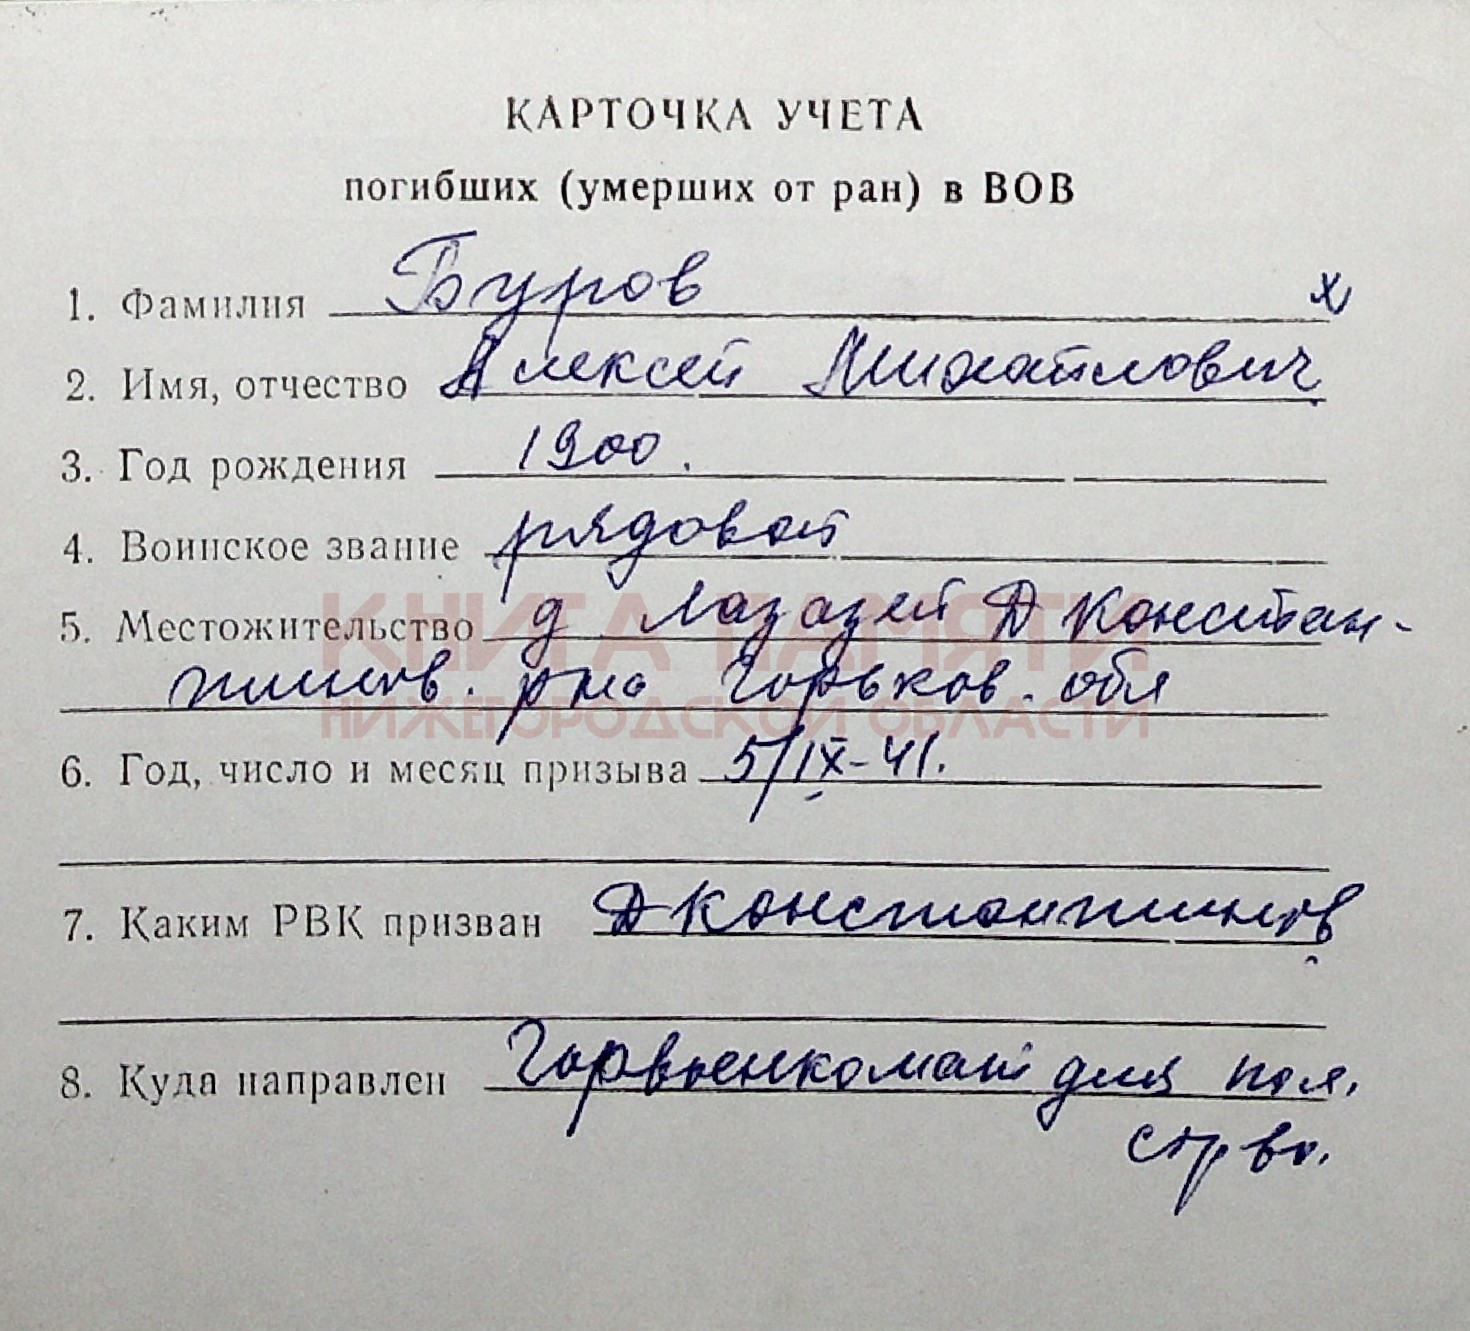 КАРТОЧКА УЧЕТА
погибших (умерших от ран) в ВОВ
1. Фамилия Буров х
2. Имя, отчество Алексей Михайлович
3. Год рождения 1900.
4. Воинское звание рядовой
5. Местожительство д Лазазей Д Констан-
тинов. рна Горьков. обл
КНИГА ПАМЯТИ
НИЖЕГОРОДСКОЙ ОБЛАСТИ
6. Год, число и месяц призыва 5/IX-41.
7. Каким РВК призван Д Константинов
8. Куда направлен Горвоенкомат для